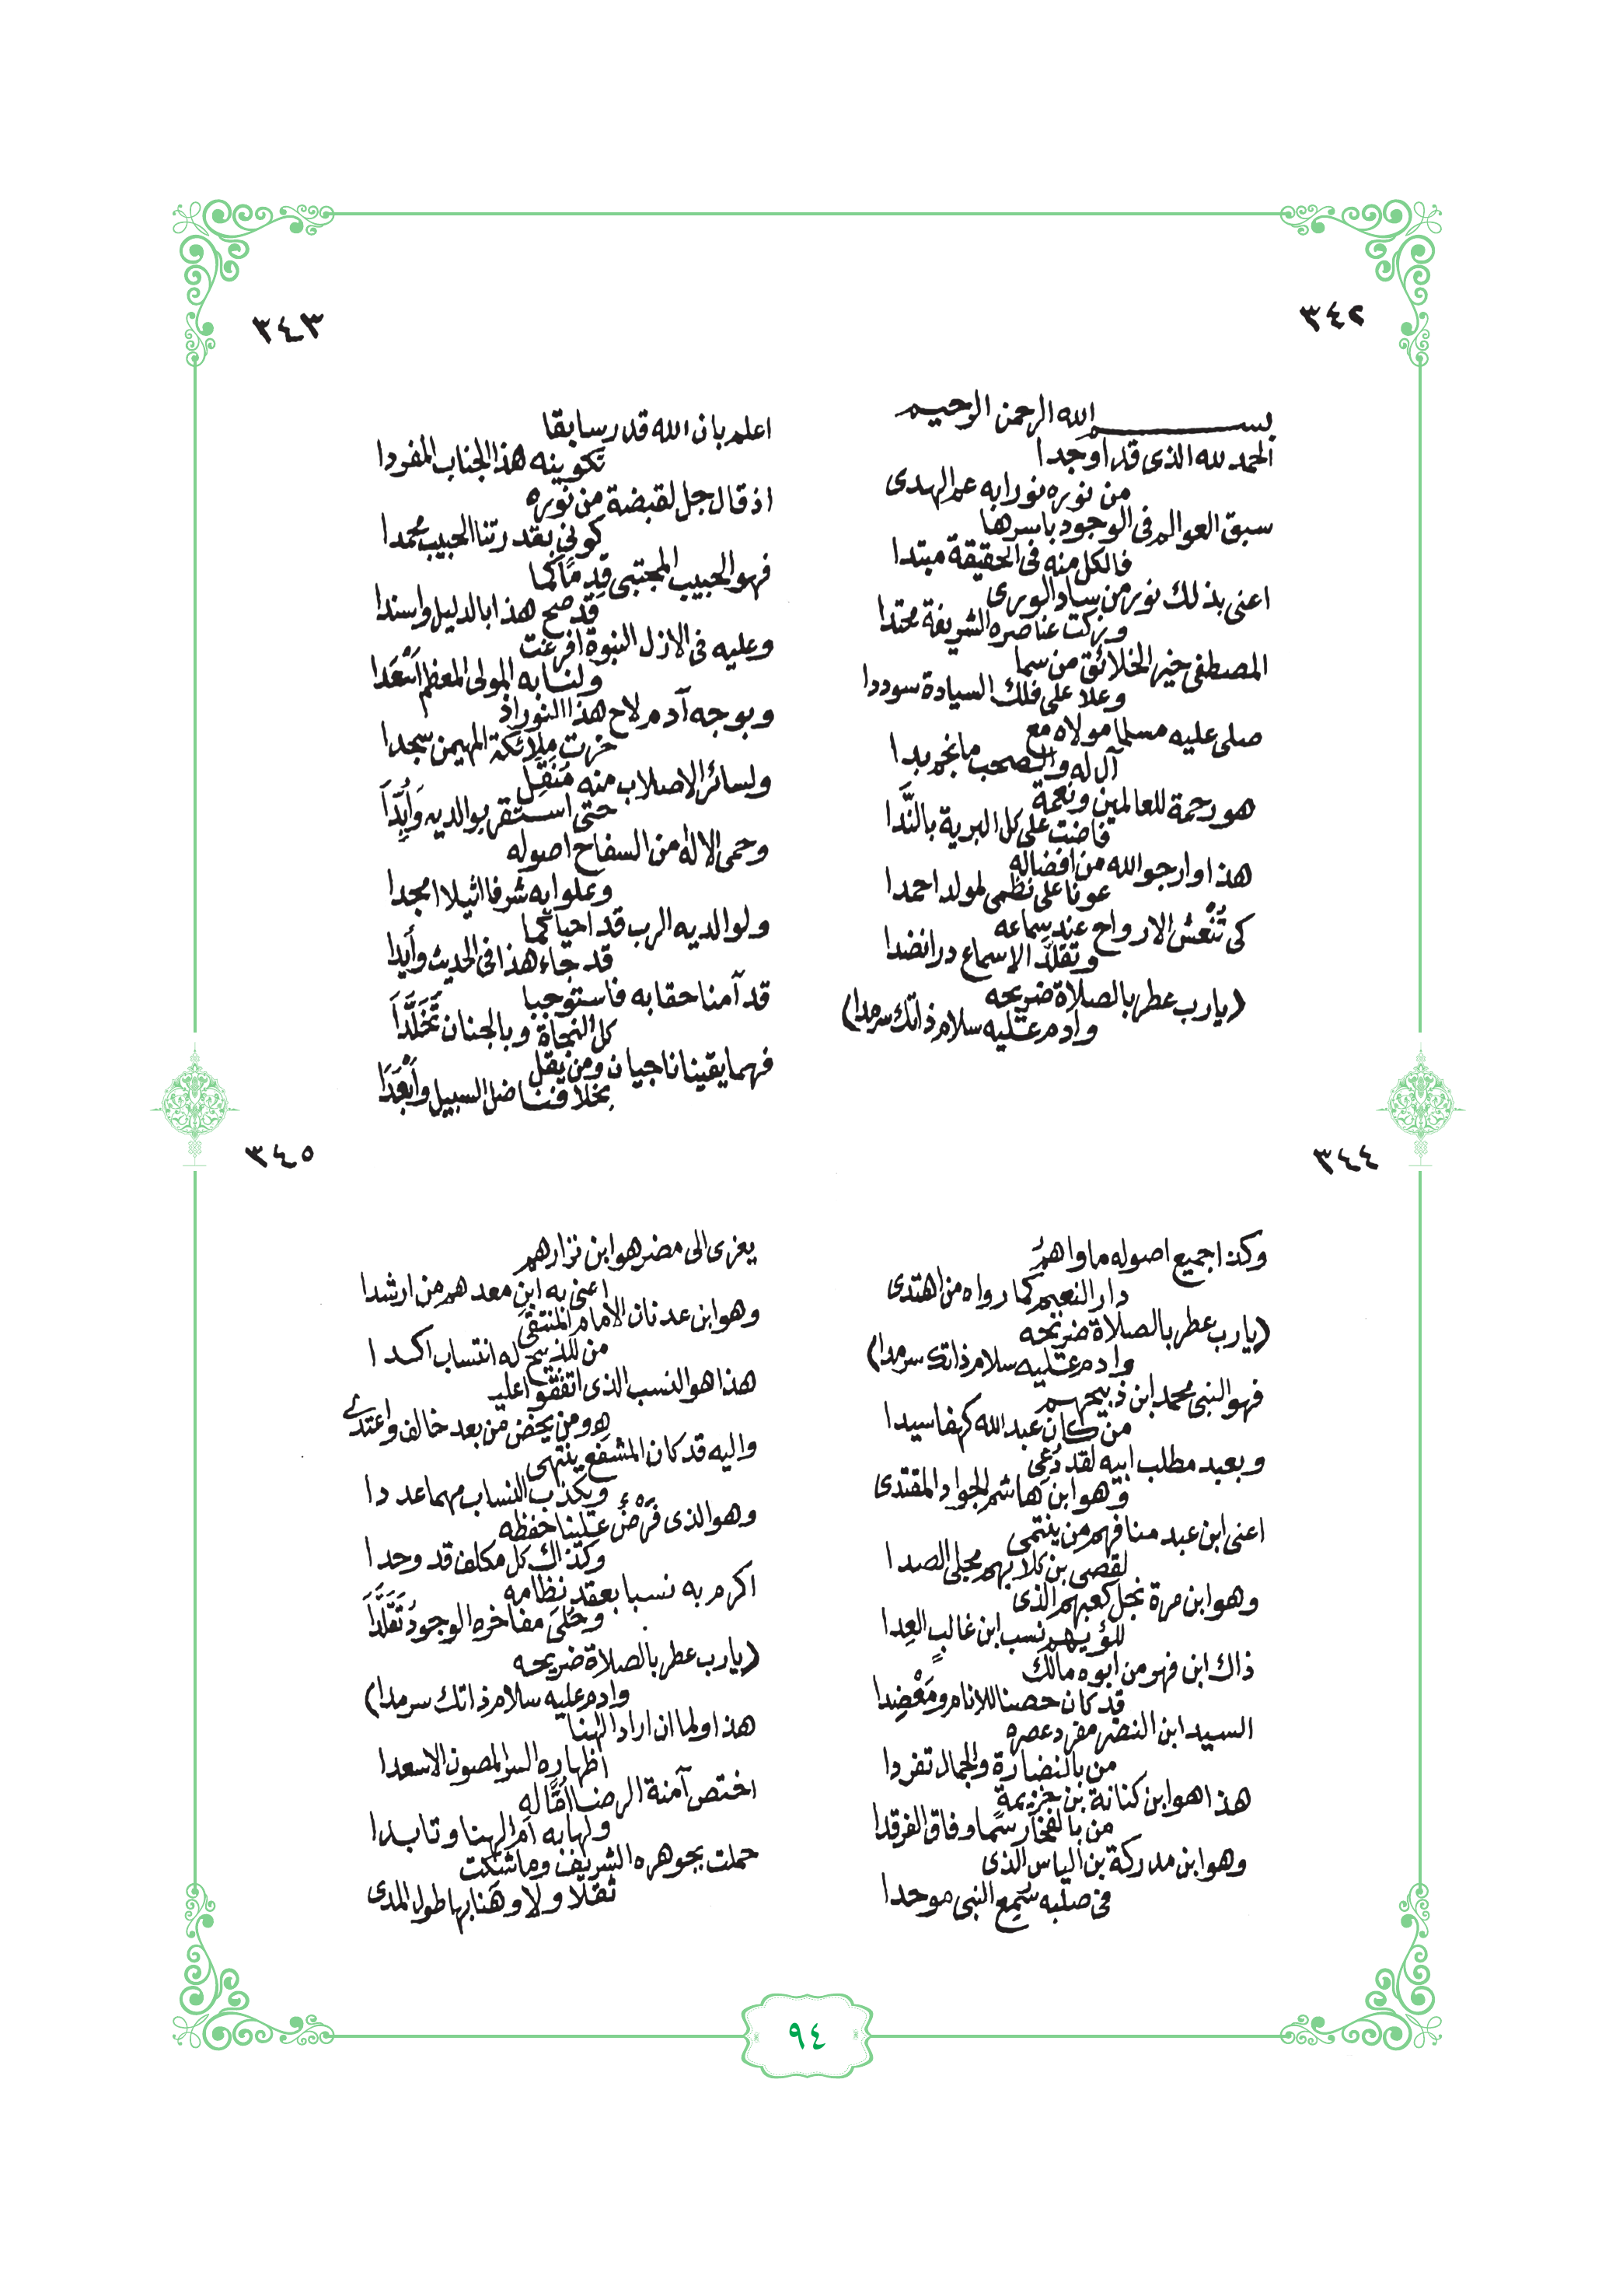 ٣٤٢
بسم الله الرحمن الرحيم
الحمد لله الذى قد اوجدا
من نوره نورا به عم الهدى
سبق العوالم فى الوجود باسرها
فالكل منه فى الحقيقة مبتدا
اعنى بذلك نور من ساد الورى
وزكت عناصره الشريفة محتدا
المصطفى خير الخلائق من سما
وعلا على فلك السيادة سوددا
صلى عليه مسلما مولاه مع
آل له والصحب ما نجم بدا
هو رحمة للعالمين ونعمة
فاضت على كل البرية بالنَّدا
هذا وارجو الله من افضاله
عونا على نظمى لمولد احمدا
كى تُنْعش الارواح عند سماعه
وتقلد الاسماع درا نضدا
(يارب عطر بالصلاة ضريحه
وادم عليه سلام ذاتك سرمدا)
٣٤٣
اعلم بان الله قدر سابقا
تكوينه هذا الجناب المفردا
اذ قال جل لقبضة من نوره
كونى بقدرتنا الحبيب محمدا
فهو الحبيب المجتبى قِدمًا كما
قد صح هذا بالدليل واسندا
وعليه فى الازل النبوة افرغت
ولنا به المولى المعظم اَسْعَدا
وبوجه آدم لاح هذا النور اذ
خرت ملائكة المهيمن سجدا
ولسائر الاصلاب منه مَنَقِّل
حتى استقر بوالديه وَاُبِّدَا
وحمى الاله من السفاح اصوله
وعلوا به شرفا اثيلا امجدا
ولوالديه الرب قد احيا كما
قد جاء هذا فى الحديث وأيدا
قد آمنا حقا به فاستوجبا
كل النجاة وبالجنان تَخَلَّدَا
فهما يقينا ناجيان ومن يقل
بخلافنا ضل السبيل وأَبْعَدَا
٣٤٤
وكذا جميع اصوله ماواهمُ
دار النعيم كما رواه من اهتدى
(يارب عطر بالصلاة ضريحه
وادم عليه سلام ذاتك سرمدا)
فهو النبى محمد ابن ذبيحهم
من كان عبد الله كهفا سيدا
وبعبد مطلب ابيه لقد دُعى
وهو ابن هاشم الجواد المقتدى
اعنى ابن عبد مناف هم من ينتمى
لقصى بن كلابهم مجلى الصدا
وهو ابن مرة نجل كعبهم الذى
للؤيهم نسب ابن غالبٍ العِدا
ذاك ابن فهو من ابوه مالك
قد كان حصنا للانام ومَعْضِدا
السيد ابن النضر مفرد عصره
من بالنضارة والجمال تفردا
هذا هو ابن كنانة بن خزيمة
من بالفخار سما وفاق الفرقدا
وهو ابن مدركة بن الياس الذى
فى صلبه سُمِع النبى موحدا
٣٤٥
يعزى الى مضر هو ابن نزارهم
اعنى به ابن معد هم من ارشدا
وهو ابن عدنان الامام المنتقى
من للذبيح له انتساب اكدا
هذا هو النسب الذى اتفقوا عليـ
ـه ومن يخض من بعد خالف واعتدى
واليه قد كان المشفع ينتهى
ويكذب النساب مهما عددا
وهو الذى فرضٌ علينا حفظه
وكذاك كل مكلف قد وحدا
اكرم به نسبا بعقد نظامه
وحُلىَ مفاخره الوجودُ تَقَلَّدَا
(يارب عطر بالصلاة ضريحه
وادم عليه سلام ذاتك سرمدا)
هذا ولما ان اراد الهنا
اظهاره السر المصون الاسعدا
اختص آمنة الرضا اُمًّا له
ولها به اَمَّ الهنا وتابدا
حملت بجوهره الشريف وما شتكت
ثقلا ولا وهنا بها طول المدى
٩٤